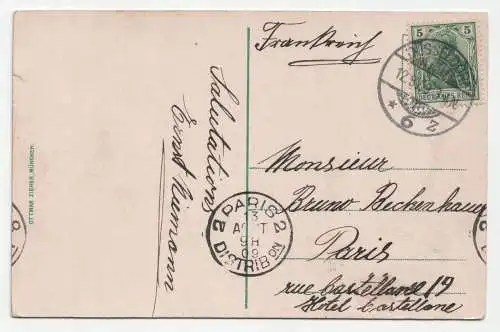 Frankreich
5 5
DEUTSCHES REICH
DÜSSELDORF
12.8
* 6 z
Salutation
Ernst Nümann
OTTMAR ZIEHER, MÜNCHEN.
PARIS 2
13
AOUT
9H
09
2 DISTRIB ON
Monsieur
Bruno Beckenhauer
Paris
rue Castellane 19
Hôtel Castellane